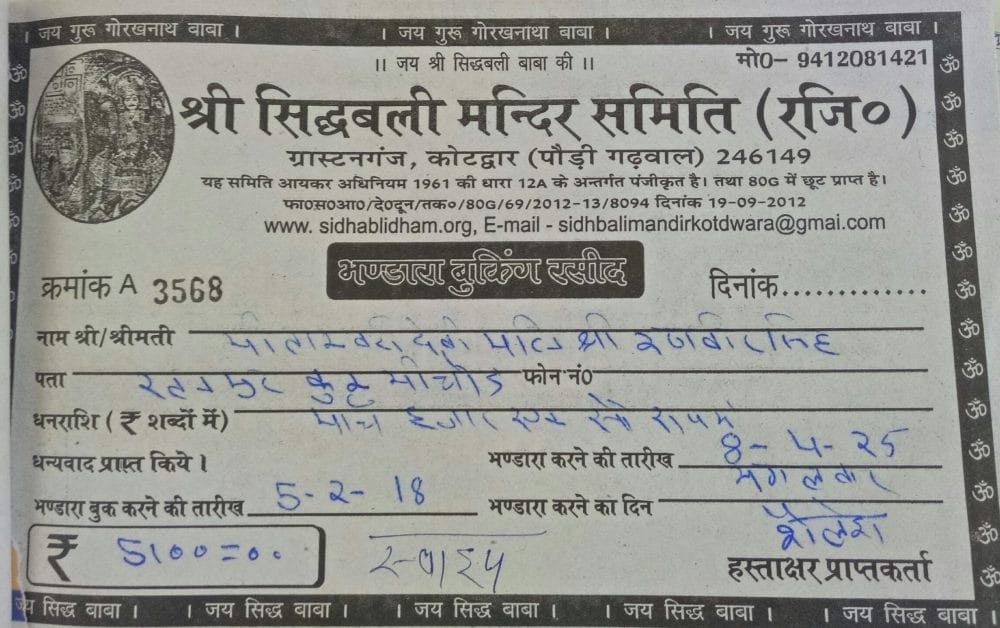 । जय गुरु गोरखनाथ बाबा । । जय गुरु गोरखनाथा बाबा । । जय गुरु गोरखनाथ बाबा ।
।। जय श्री सिद्धबली बाबा की ।। मो0- 9412081421
श्री सिद्धबली मन्दिर समिति (रजि०)
ग्रास्टनगंज, कोटद्वार (पौड़ी गढ़वाल) 246149
यह समिति आयकर अधिनियम 1961 की धारा 12A के अन्तर्गत पंजीकृत है। तथा 80G में छूट प्राप्त है।
फा०स०आ०/दे०दून/तक०/80G/69/2012-13/8094 दिनांक 19-09-2012
www. sidhablidham.org, E-mail - sidhbalimandirkotdwara@gmai.com
भण्डारा बुकिंग रसीद
क्रमांक A 3568 दिनांक.............
नाम श्री/श्रीमती देवी पत्नि श्री रणवीर सिंह
पता फोन नं0
धनराशि (₹ शब्दों में) पांच हजार एक सौ
धन्यवाद प्राप्त किये । भण्डारा करने की तारीख 8-4-25
भण्डारा बुक करने की तारीख 5-2-18 भण्डारा करने का दिन मंगलवार
₹ 5100=00 शैलेश
हस्ताक्षर प्राप्तकर्ता
जय सिद्ध बाबा । । जय सिद्ध बाबा । । जय सिद्ध बाबा । । जय सिद्ध बाबा । । जय सिद्ध बाबा ।